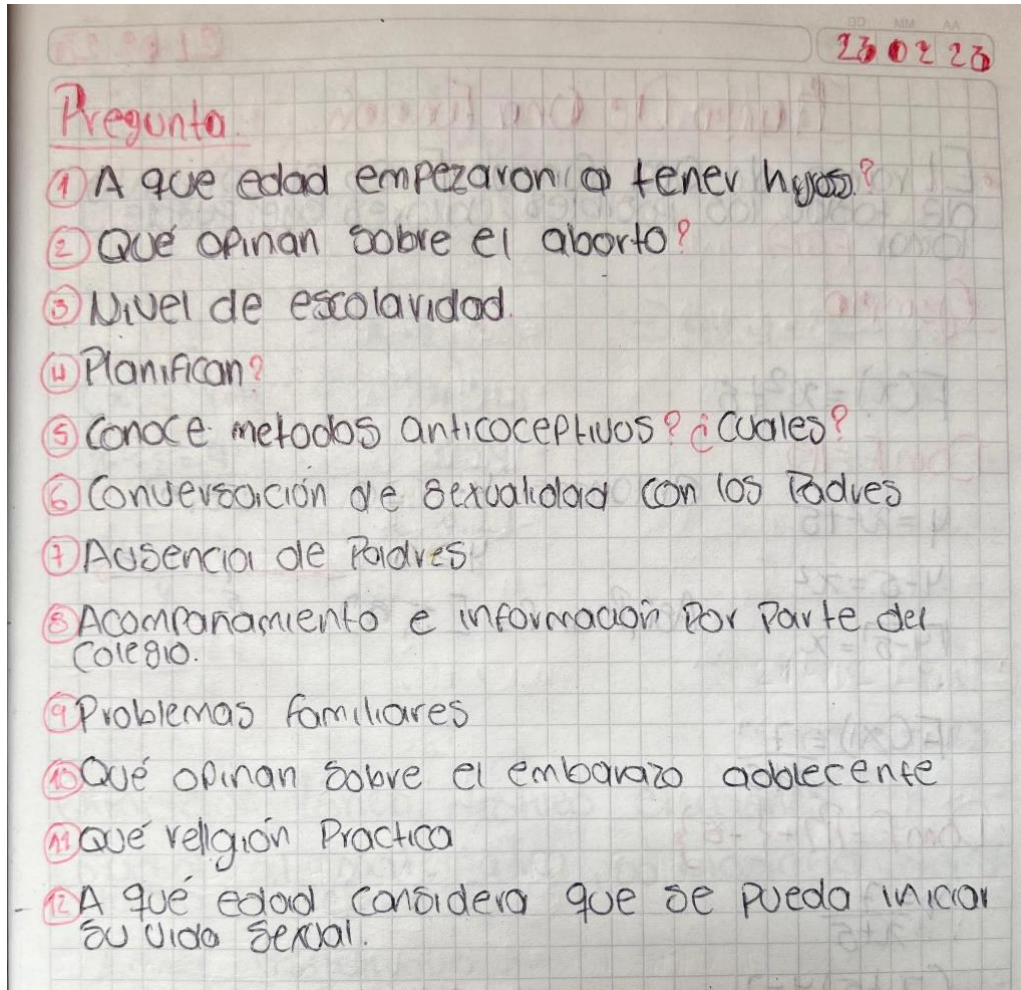 DD MM AA
23 02 23
Pregunta.
① A que edad empezaron a tener hijos?
② Qué opinan sobre el aborto?
③ Nivel de escolaridad.
④ Planifican?
⑤ Conoce metodos anticoceptivos? ¿Cuales?
⑥ Conversación de sexualidad con los Padres
⑦ Ausencia de Padres
⑧ Acompañamiento e información Por Parte del
Colegio.
⑨ Problemas familiares
⑩ Qué opinan sobre el embarazo adolecente
⑪ Qué religión Practica
⑫ A qué edad considera que se pueda iniciar
su vida sexual.